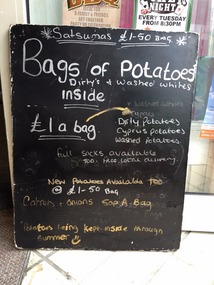 NIGHT
EVERY TUESDAY
FROM 8.30PM
Satsumas £1-50 BAG
Bags of Potatoes
Dirty's + Washed Whites
inside
£1 a bag
Dirty Potatoes
Cyprus Potatoes
Washed Potatoes
Full sacks available
too. Free local delivery.
New Potatoes Available too
@ £1-50 Bag
Carrots + Onions 50p A Bag
Potatoes being kept inside through
Summer